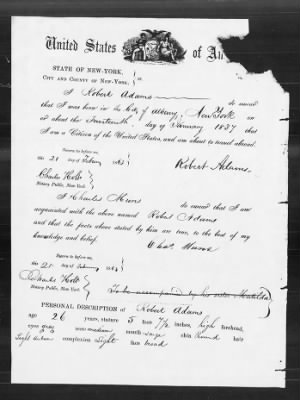 United States of Am
STATE OF NEW-YORK,
CITY AND COUNTY OF NEW-YORK, ss.
I Robert Adams do swear
that I was born in the City of Albany, New York on
or about the fourteenth day of January 1837 that
I am a Citizen of the United States, and am about to travel abroad.
Robert Adams
Sworn to before me,
this 21 day of February 1863
Charles Holt
Notary Public, New York.
I Charles do swear that I am
acquainted with the above named Robert Adams
and that the facts above stated by him are true, to the best of my
knowledge and belief.
Chas.
Sworn to before me,
this 21 day of February 1863
Charles Holt
Notary Public, New York.
To be accompanied by his sister Matilda
PERSONAL DESCRIPTION of Robert Adams
age 26 years, stature 5 feet 7 1/2 inches, high forehead,
eyes nose medium mouth large chin round hair
Light Auburn complexion Light face broad